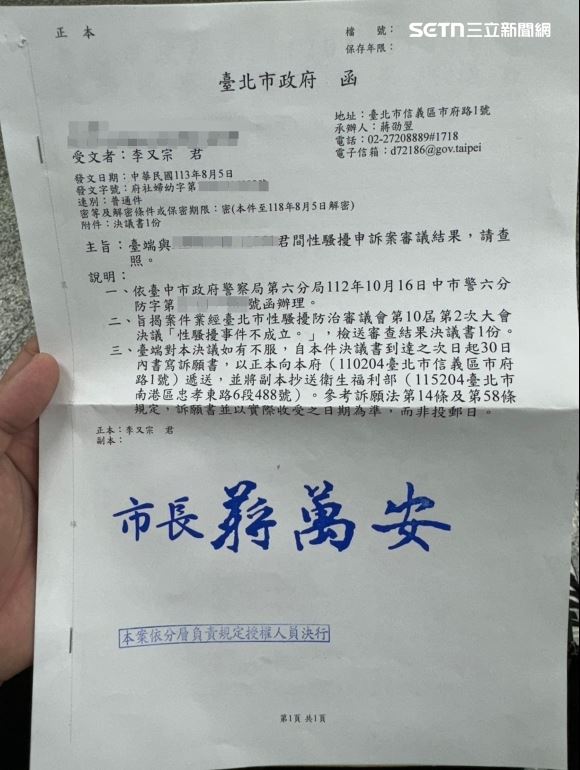 正本
檔　號：
保存年限：
SETN三立新聞網
臺北市政府　函
地址：臺北市信義區市府路1號
承辦人：蔣劭翌
電話：02-27208889#1718
電子信箱：d72186@gov.taipei
受文者：李又宗　君
發文日期：中華民國113年8月5日
發文字號：府社婦幼字第
速別：普通件
密等及解密條件或保密期限：密(本件至118年8月5日解密)
附件：決議書1份
主旨：臺端與　君間性騷擾申訴案審議結果，請查
照。
說明：
一、依臺中市政府警察局第六分局112年10月16日中市警六分
防字第　號函辦理。
二、旨揭案件業經臺北市性騷擾防治審議會第10屆第2次大會
決議「性騷擾事件不成立。」，檢送審查結果決議書1份。
三、臺端對本決議如有不服，自本件決議書到達之次日起30日
內書寫訴願書，以正本向本府（110204臺北市信義區市府
路1號）遞送，並將副本抄送衛生福利部（115204臺北市
南港區忠孝東路6段488號）。參考訴願法第14條及第58條
規定，訴願書並以實際收受之日期為準，而非投郵日。
正本：李又宗　君
副本：
市長蔣萬安
本案依分層負責規定授權人員決行
第1頁 共1頁